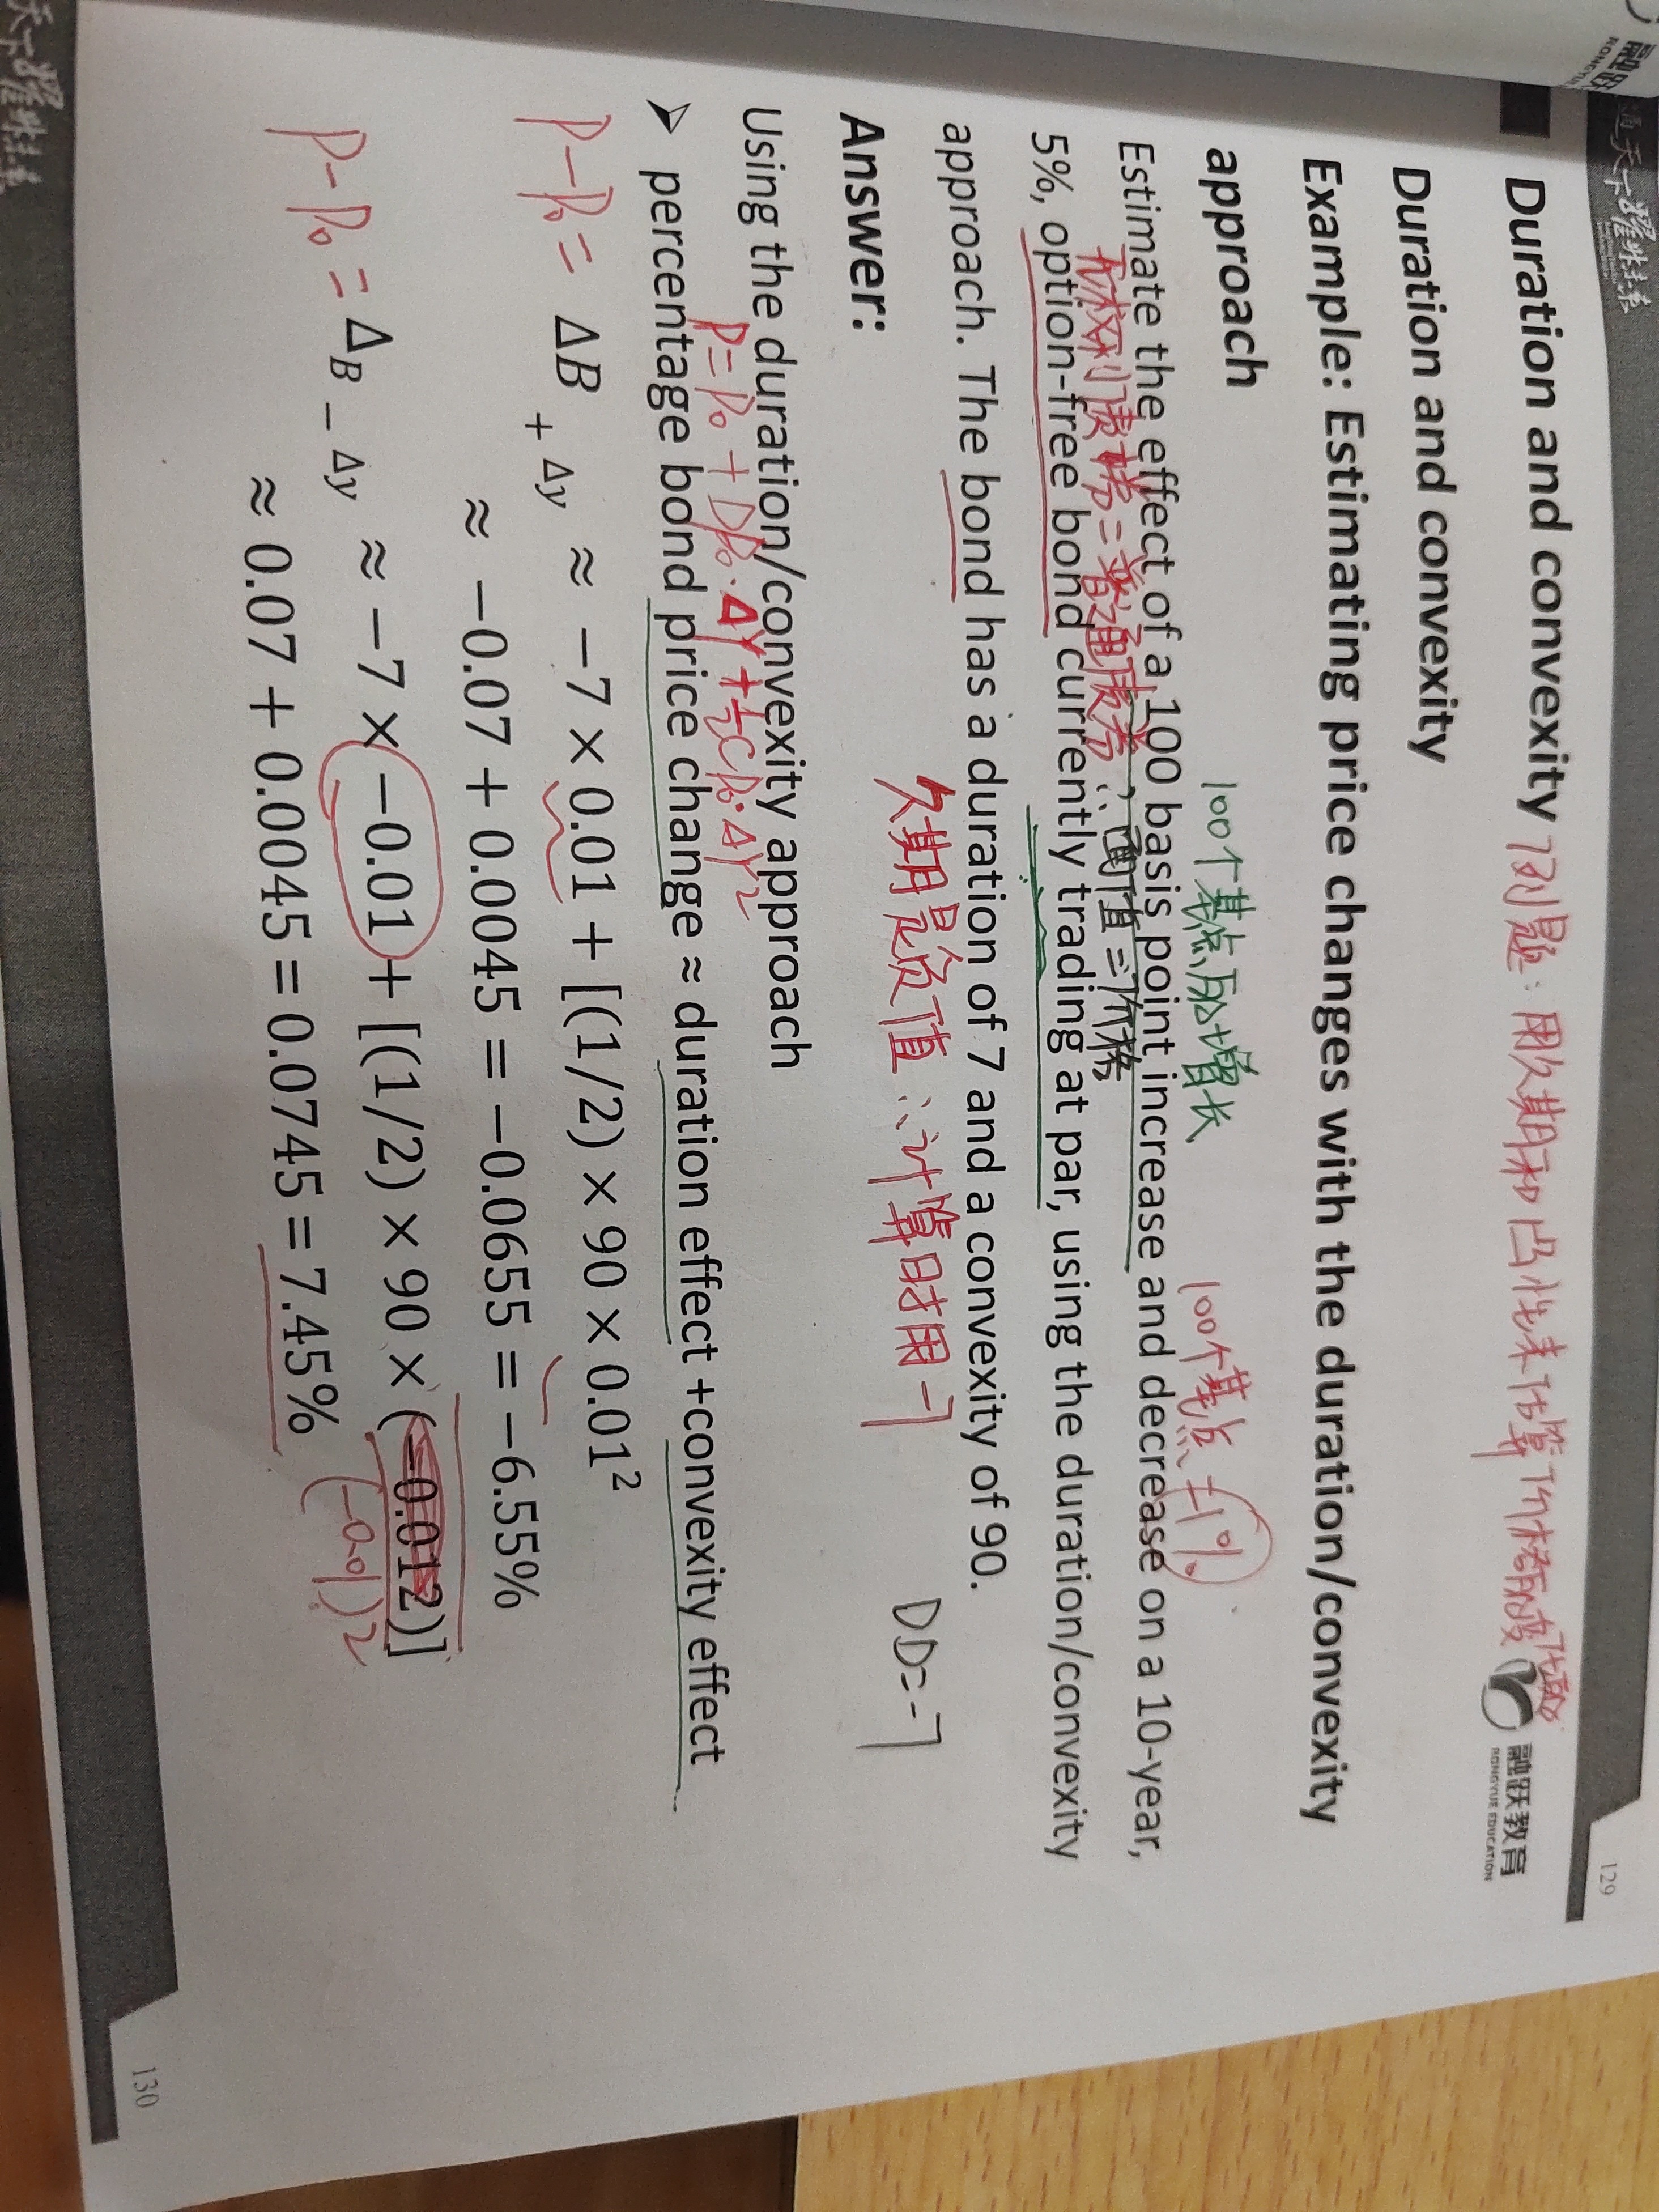 融跃
129
Duration and convexity 例题：用久期和凸性来估算价格的变化
融跃教育
RONGYUE EDUCATION
Duration and convexity
Example: Estimating price changes with the duration/convexity
approach
100个基点的增长 100个基点 ±1%
Estimate the effect of a 100 basis point increase and decrease on a 10-year,
无权利债券=普通债券, ∴面值=价格
5%, option-free bond currently trading at par, using the duration/convexity
approach. The bond has a duration of 7 and a convexity of 90.
久期是负值 ∴计算时用-7 DD=-7
Answer:
Using the duration/convexity approach
P=P₀+DP₀·Δy+½CP₀·Δy²
➢ percentage bond price change ≈ duration effect +convexity effect
P-P₀= ΔB + Δy ≈ −7 × 0.01 + [(1/2) × 90 × 0.01²
≈ −0.07 + 0.0045 = −0.0655 = −6.55%
P-P₀= ΔB − Δy ≈ −7 × −0.01 + [(1/2) × 90 × (−0.012)]
(-0.01)²
≈ 0.07 + 0.0045 = 0.0745 = 7.45%
130